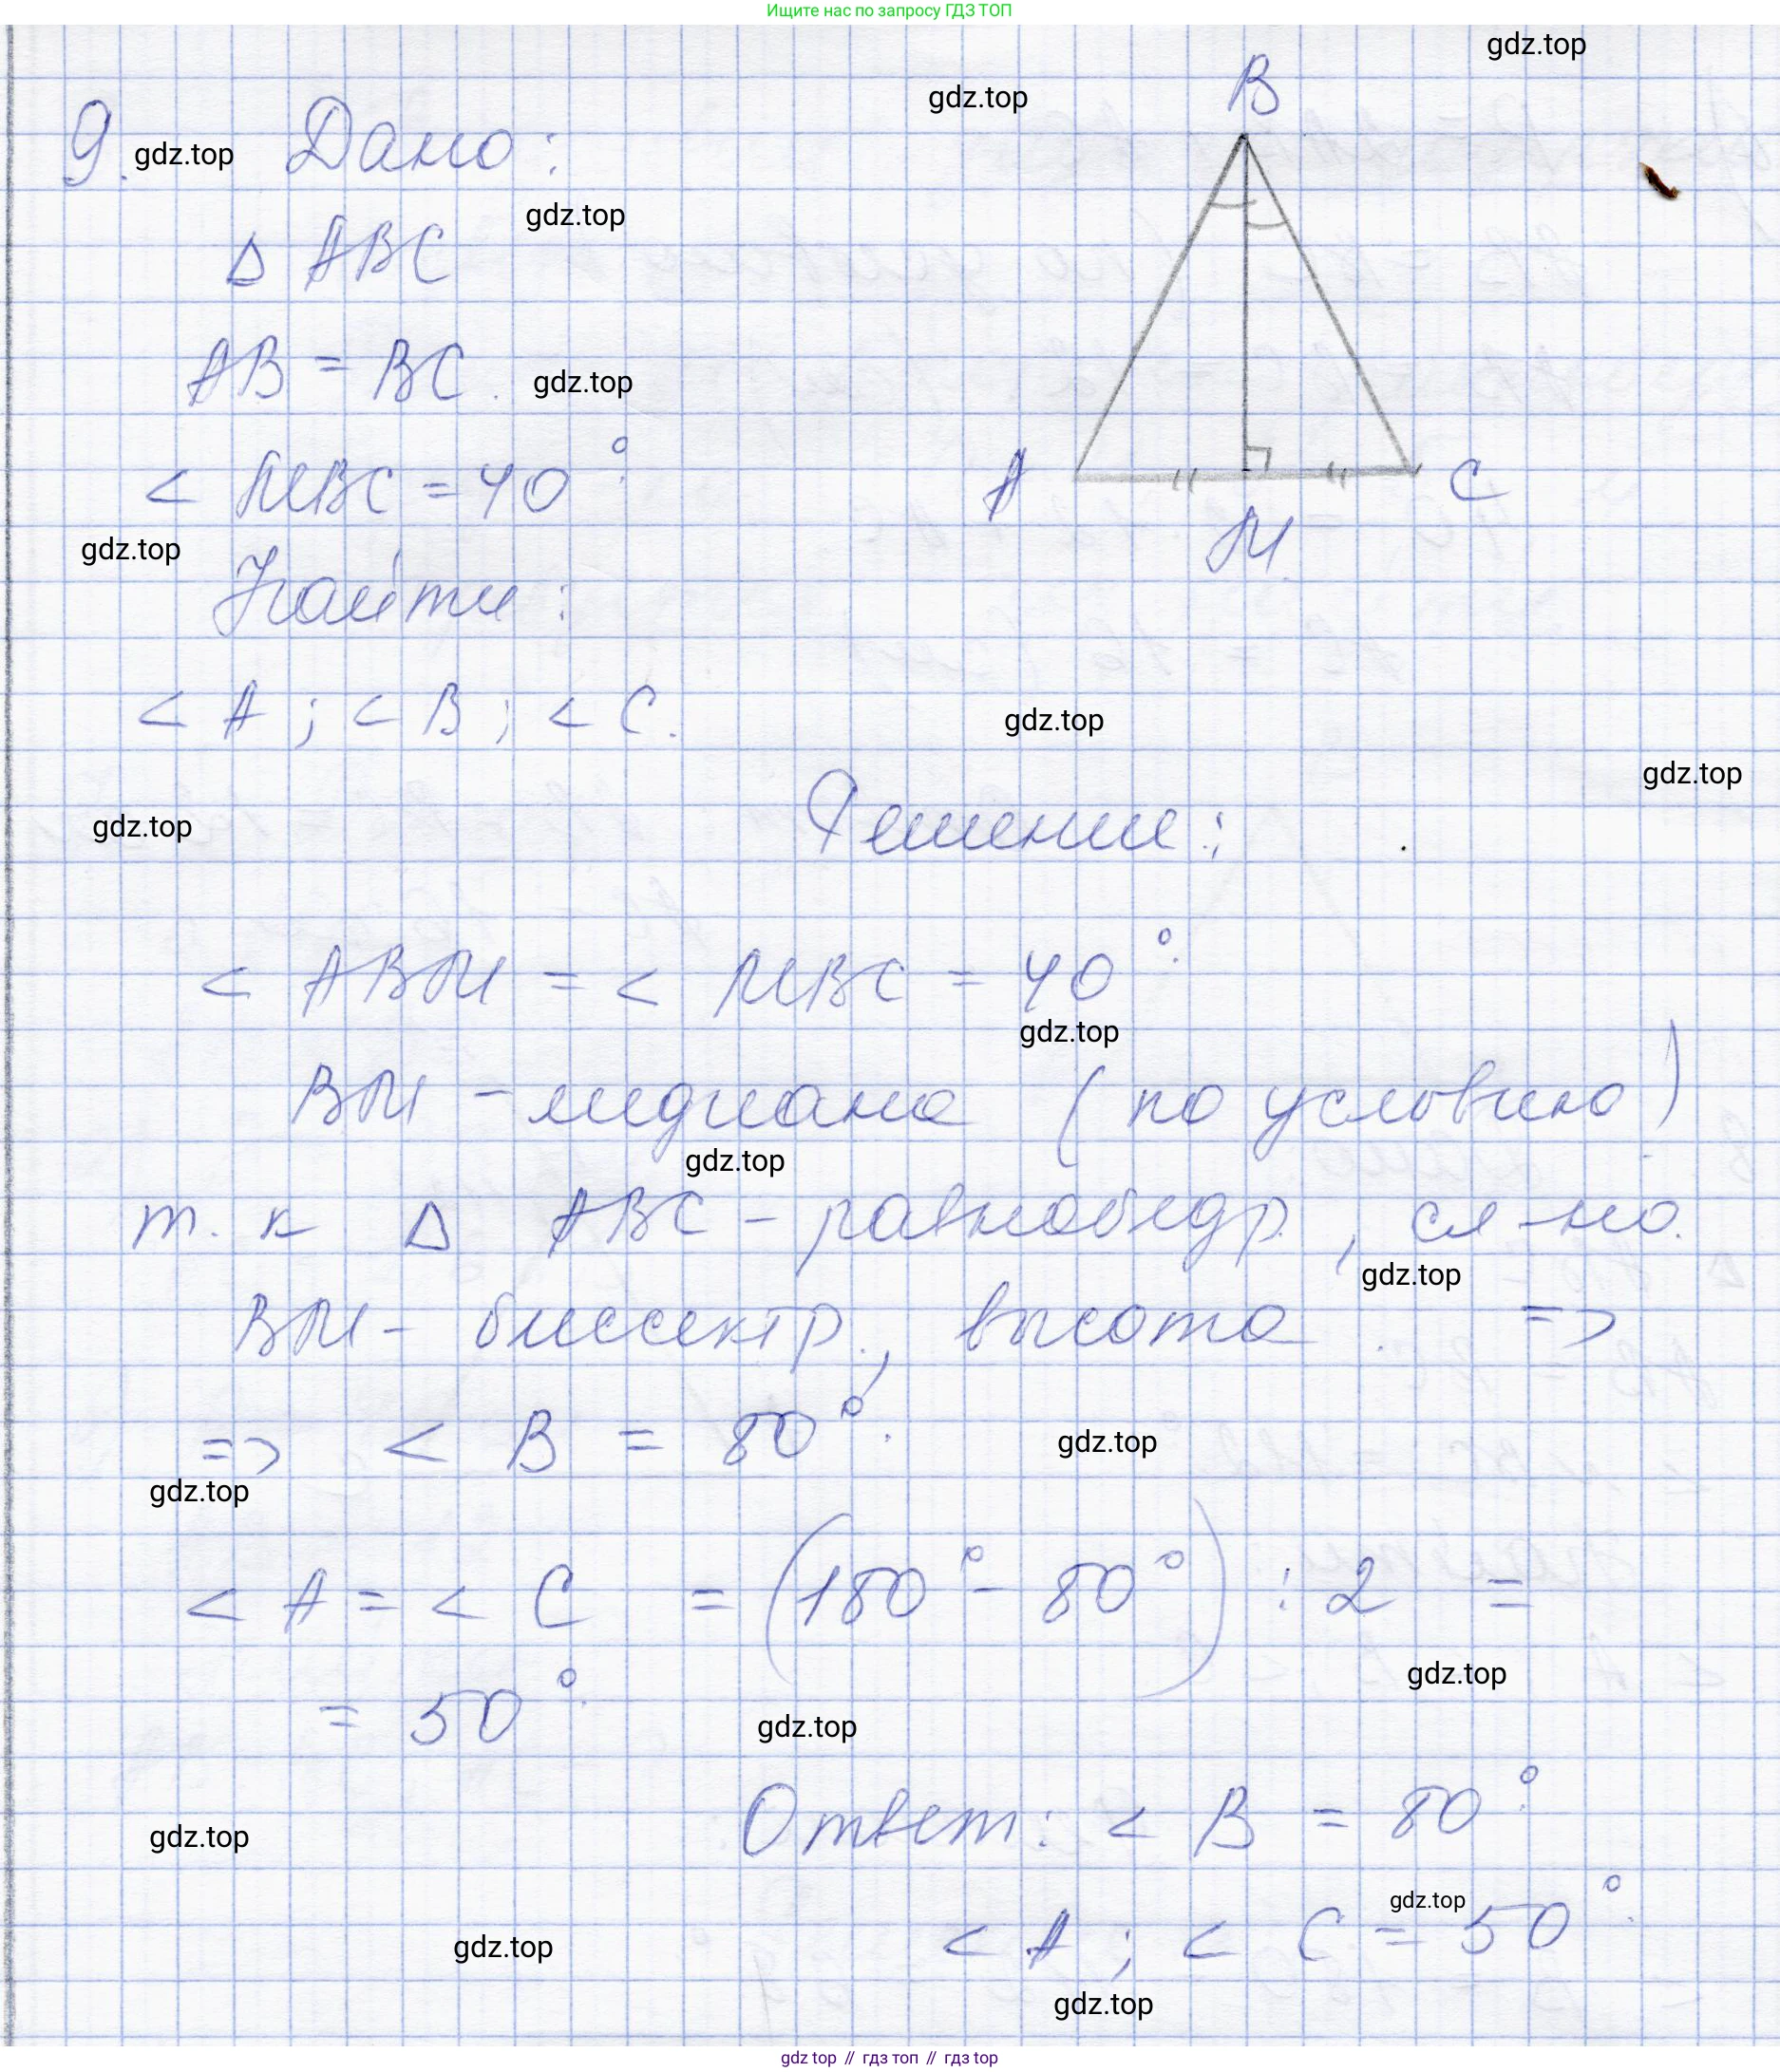 Ищите нас по запросу ГДЗ ТОП
gdz.top
B
gdz.top
9. Дано:
gdz.top
gdz.top
Δ ABC
AB = BC.
gdz.top
< MBC = 40°.
A
C
M
gdz.top
Найти:
< A ; < B ; < C.
gdz.top
gdz.top
gdz.top
Решение:
< ABM = < MBC = 40°.
gdz.top
BM – медиана (по условию)
gdz.top
т. к Δ ABC – равнобедр., сл-но.
gdz.top
BM – биссектр., высота. =>
=> < B = 80°.
gdz.top
gdz.top
< A = < C = (180° - 80°) : 2 =
gdz.top
= 50°.
gdz.top
Ответ: < B = 80°.
gdz.top
gdz.top
< A ; < C = 50°.
gdz.top
gdz.top
gdz top // гдз топ // гдз top